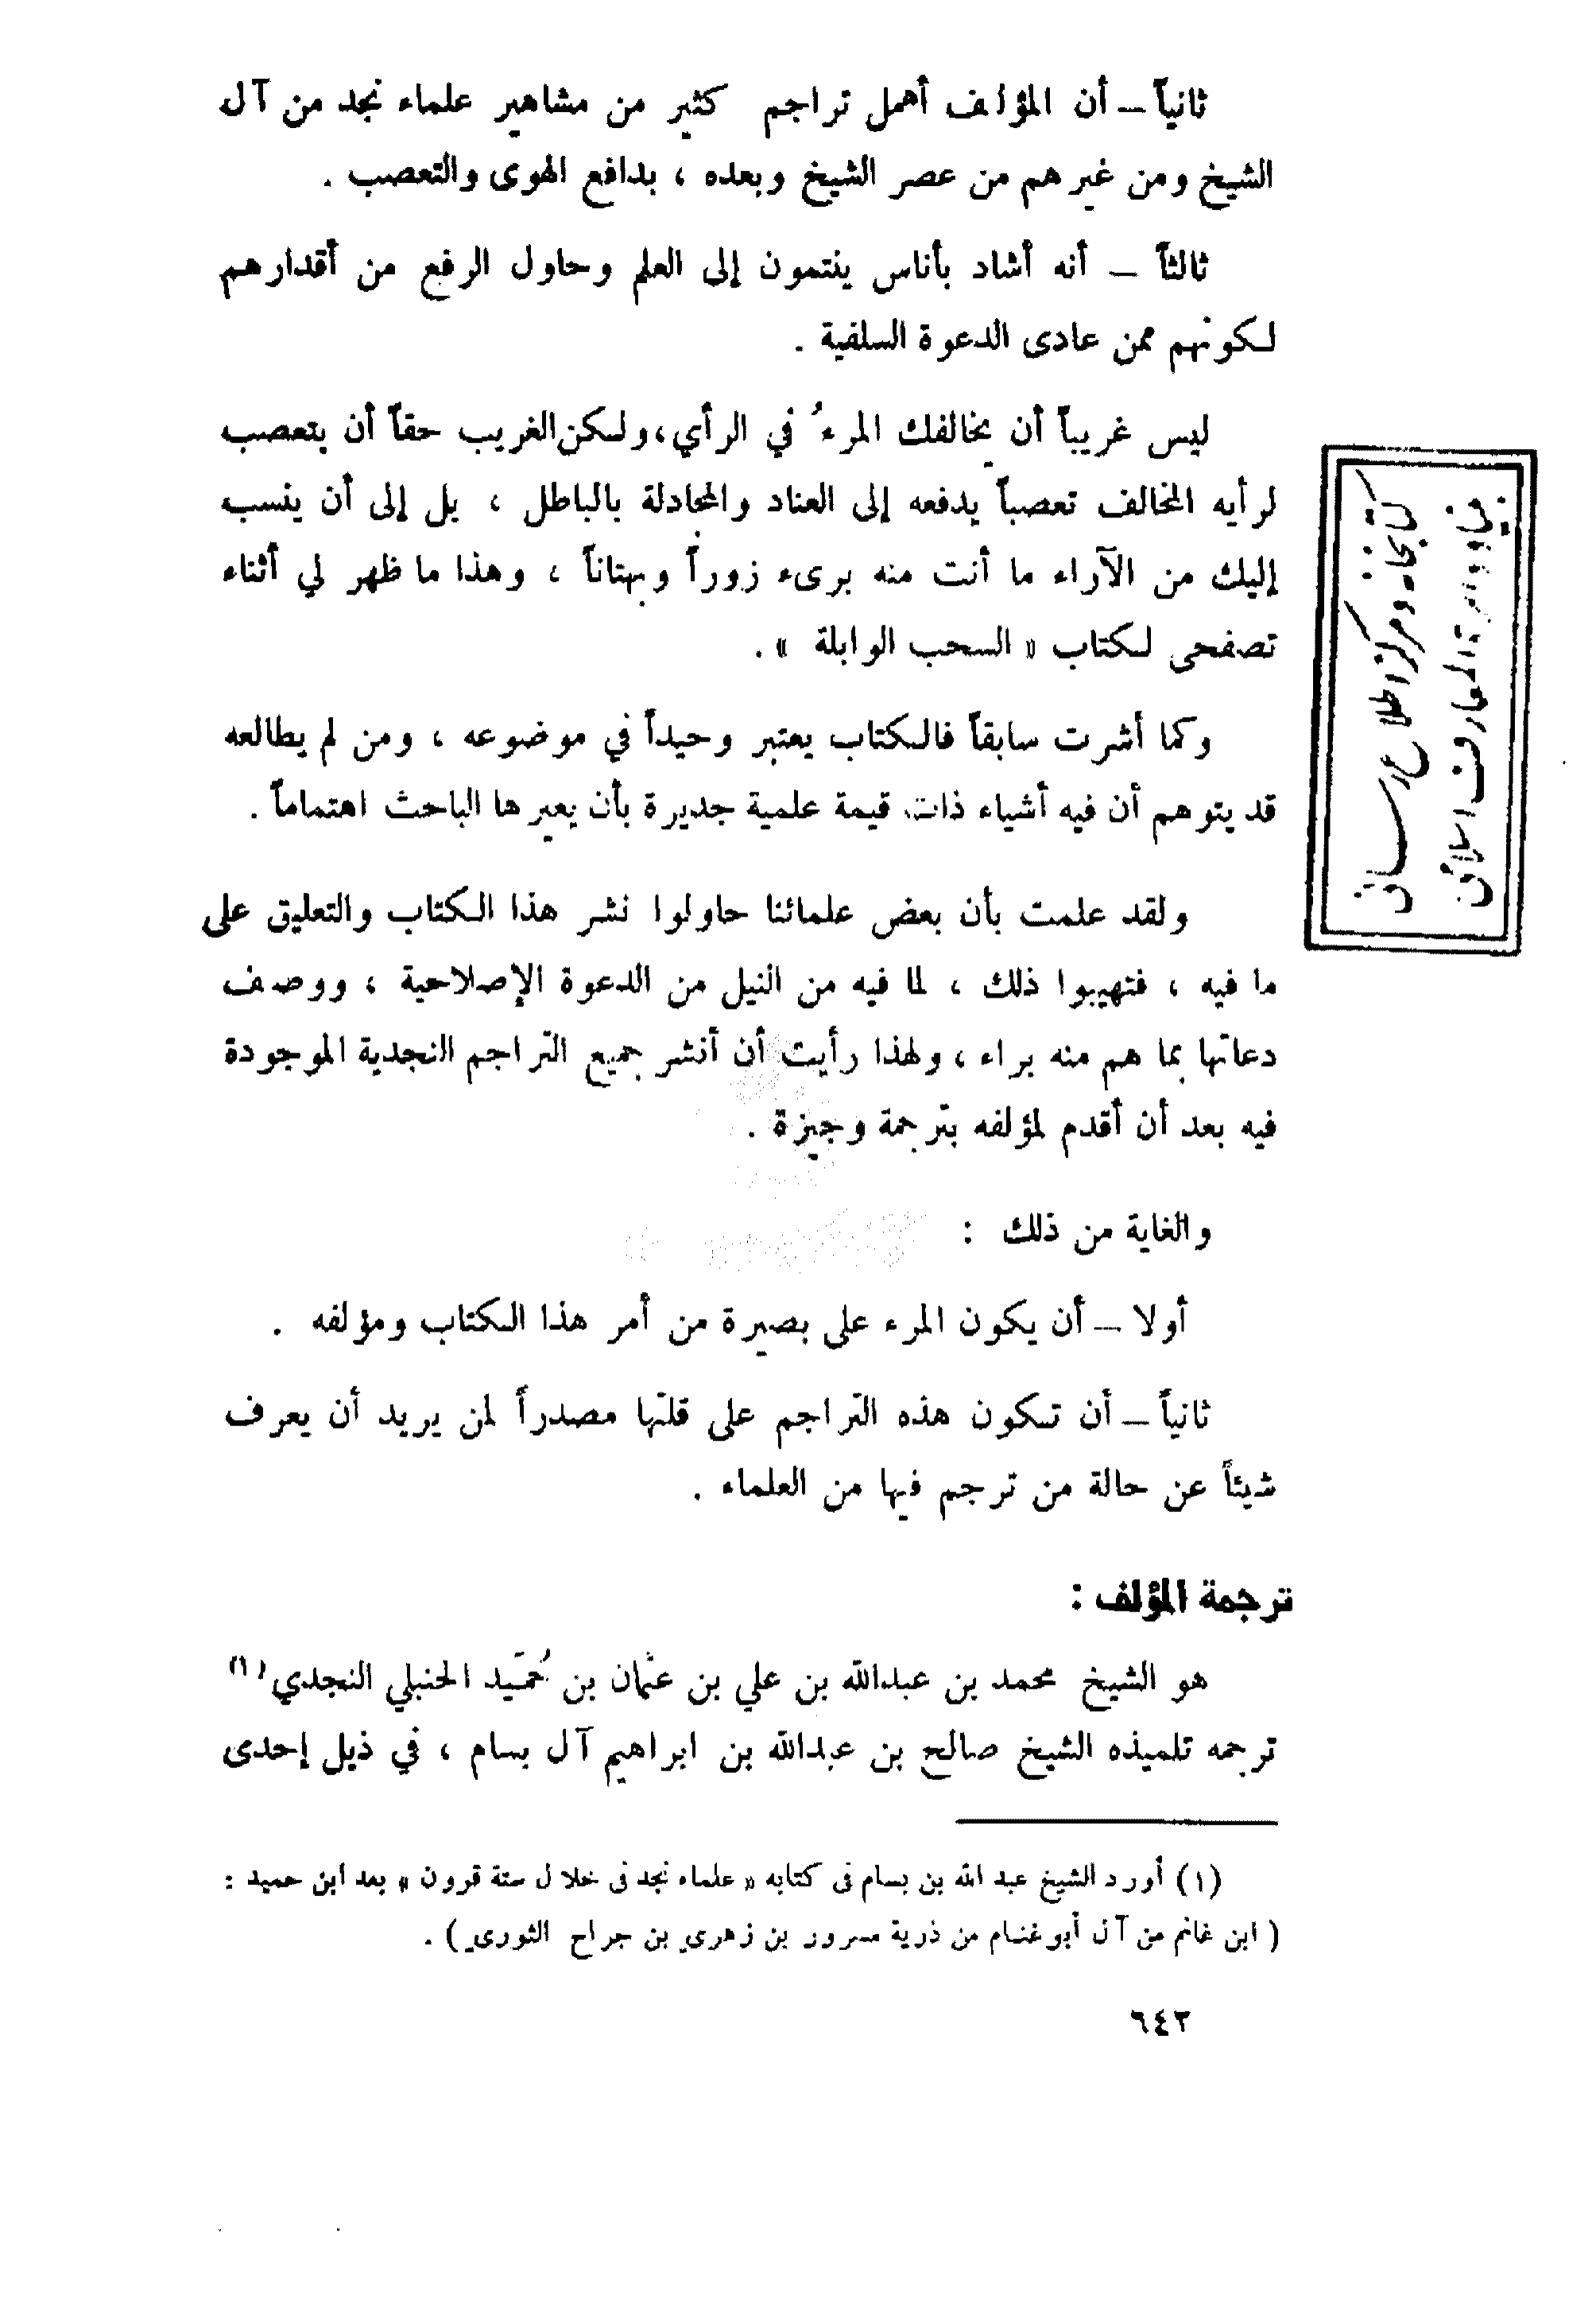 ثانياً – أن المؤلف أهمل تراجم كثير من مشاهير علماء نجد من آل
الشيخ ومن غيرهم من عصر الشيخ وبعده ، بدافع الهوى والتعصب .
ثالثاً – أنه أشاد بأناس ينتمون إلى العلم وحاول الرفع من أقدارهم
لكونهم ممن عادى الدعوة السلفية .
ليس غريباً أن يخالفك المرءُ في الرأي، ولكن الغريب حقاً أن يتعصب
لرأيه المخالف تعصباً يدفعه إلى العناد والمجادلة بالباطل ، بل إلى أن ينسب
إليك من الآراء ما أنت منه برىء زوراً وبهتاناً ، وهذا ما ظهر لي أثناء
تصفحي لكتاب « السحب الوابلة » .
وكما أشرت سابقاً فالكتاب يعتبر وحيداً في موضوعه ، ومن لم يطالعه
قد يتوهم أن فيه أشياء ذات قيمة علمية جديرة بأن يعيرها الباحث اهتماماً .
ولقد علمت بأن بعض علمائنا حاولوا نشر هذا الكتاب والتعليق على
ما فيه ، فتهيبوا ذلك ، لما فيه من النيل من الدعوة الإصلاحية ، ووصف
دعاتها بما هم منه براء ، ولهذا رأيت أن أنشر جميع التراجم النجدية الموجودة
فيه بعد أن أقدم لمؤلفه بترجمة وجيزة .
والغاية من ذلك :
أولا – أن يكون المرء على بصيرة من أمر هذا الكتاب ومؤلفه .
ثانياً – أن تكون هذه التراجم على قلتها مصدراً لمن يريد أن يعرف
شيئاً عن حالة من ترجم فيها من العلماء .
ترجمة المؤلف :
هو الشيخ محمد بن عبدالله بن علي بن عثمان بن حُمَيد الحنبلي النجدي (١)
ترجمه تلميذه الشيخ صالح بن عبدالله بن ابراهيم آل بسام ، في ذيل إحدى
(١) أورد الشيخ عبد الله بن بسام فى كتابه « علماء نجد فى خلال ستة قرون » بعد ابن حميد :
( ابن غانم من آل أبو غنام من ذرية مسرور بن زهري بن جراح الثوري ) .
٦٤٢
كتابخانه ومركز اطلاع رسانى
بنياد دايرة المعارف اسلامى